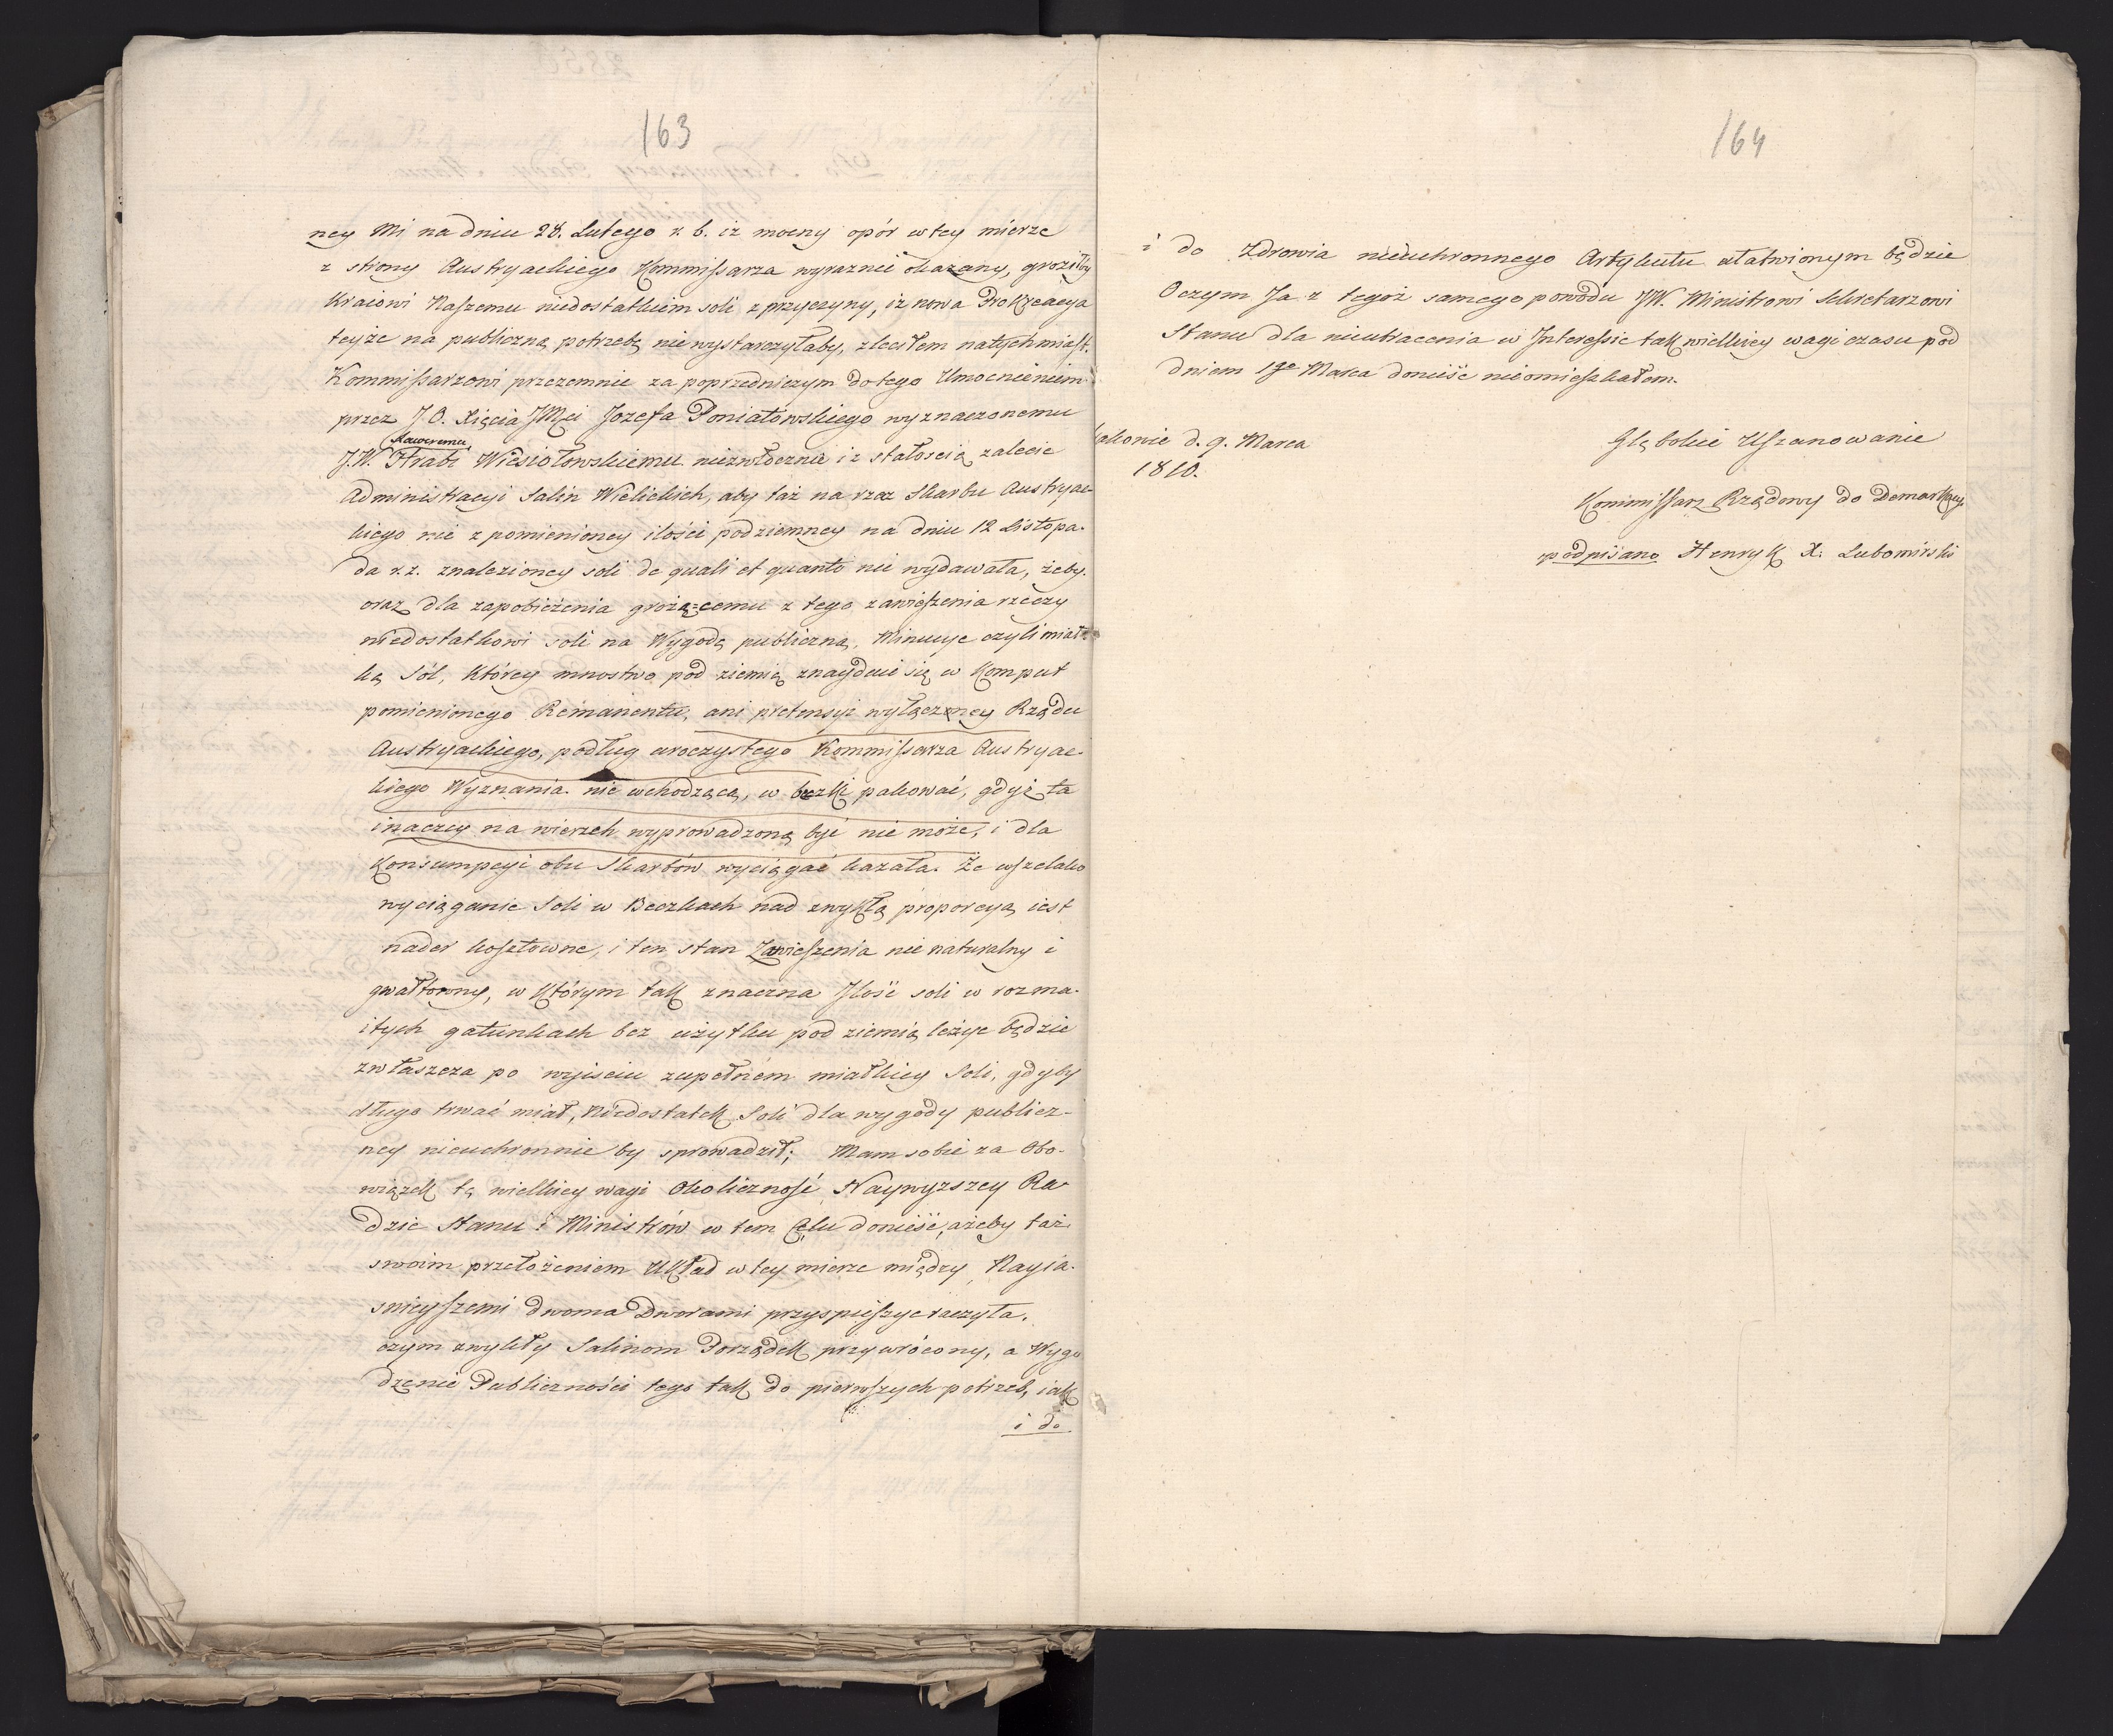 163
ney Mi na dniu 28. Lutego r. b. iż mocny opór w tey mierze
z strony Austryackiego Kommissarza wyraznie okazany, groziłby
Kraiowi Naszemu niedostatkiem soli z przyczyny, iż nowa Produkcacya
teyże na publiczną potrzebę nie wystarczyłaby, zleciłem natychmiast.
Kommissarzowi przezemnie za poprzedniczym do tego Umocnieniem
przez J. O. Xięcia JMci Jozefa Poniatowskiego wyznaczonemu
Xaweremu
J.W. Hrabi Wiesiołowskiemu niezwłocznie i z stałoscią zalecie
Administracyi Salin Wielickich, aby taż na rzecz Skarbu Austryac-
kiego nie z pomienioney ilości podziemney na dniu 12 Listopa-
da r. z. znalezioney soli de quali et quanto nie wydawała, żeby.
oraz dla zapobieżenia grożą=cemu z tego zawieszenia rzeczy
niedostatkowi soli na Wygodę publiczną, Minucye czyli miał-
ką Sól, Którey mnostwo pod ziemią znayduie się w Komput
pomienionego Remanentu, ani pretensyi wyłączney Rządu
Austryackiego, podług uroczystego Kommissarza Austryac-
kiego Wyznania nie wchodzącą, w beczki pakować, gdyż ta
inaczey na wierzch wyprowadzoną być nie może, i dla
Konsumpcyi obu Skarbów wyciągać kazała. Że wszelako
wyciąganie Soli w Beczkach nad zwykłą proporcyą iest
nader kosztowne, i ten stan Zawieszenia nie naturalny i
gwałtowny, w Którym tak znaczna Jlość soli w rozma-
itych gatunkach bez użytku pod ziemią leżyc będzie
zwłaszcza po wyisciu zupełném miałkiey Soli, gdyby
długo trwać miał, Niedostatek Soli dla wygody publicz-
ney nieuchronnie by sprowadził; Mam sobie za Obo-
wiązek tę wielkiey wagi Okoliczność Naywyzszey Ra-
dzie Stanu i Ministrów w tem Celu donieść, ażeby taż
swoim przełożeniem Układ w tey mierze między Nayia-
snieyszemi dwoma Dworami przyspieszyć raczyła.
czym zwykły Salinom Porządek przywrócony, a Wygo
dzenie Publiczności tego tak do pierwszych potrzeb, iak
i do
164
i do Zdrowia nieuchronnego Artykułu ułatwionym będzie
O czym Ja z tegoż samego powodu JW. Ministrowi Sekretarzowi
Stanu dla nieutracenia w Jnteressie tak wielkiey wagi czasu pod
dniem 1go Marca donieść nieomieszkałem.
akowie d. 9. Marca
1810.
Głębokie Uszanowanie
Kommissarz Rządowy do Demarkacyi
podpisano Henryk X. Lubomirski